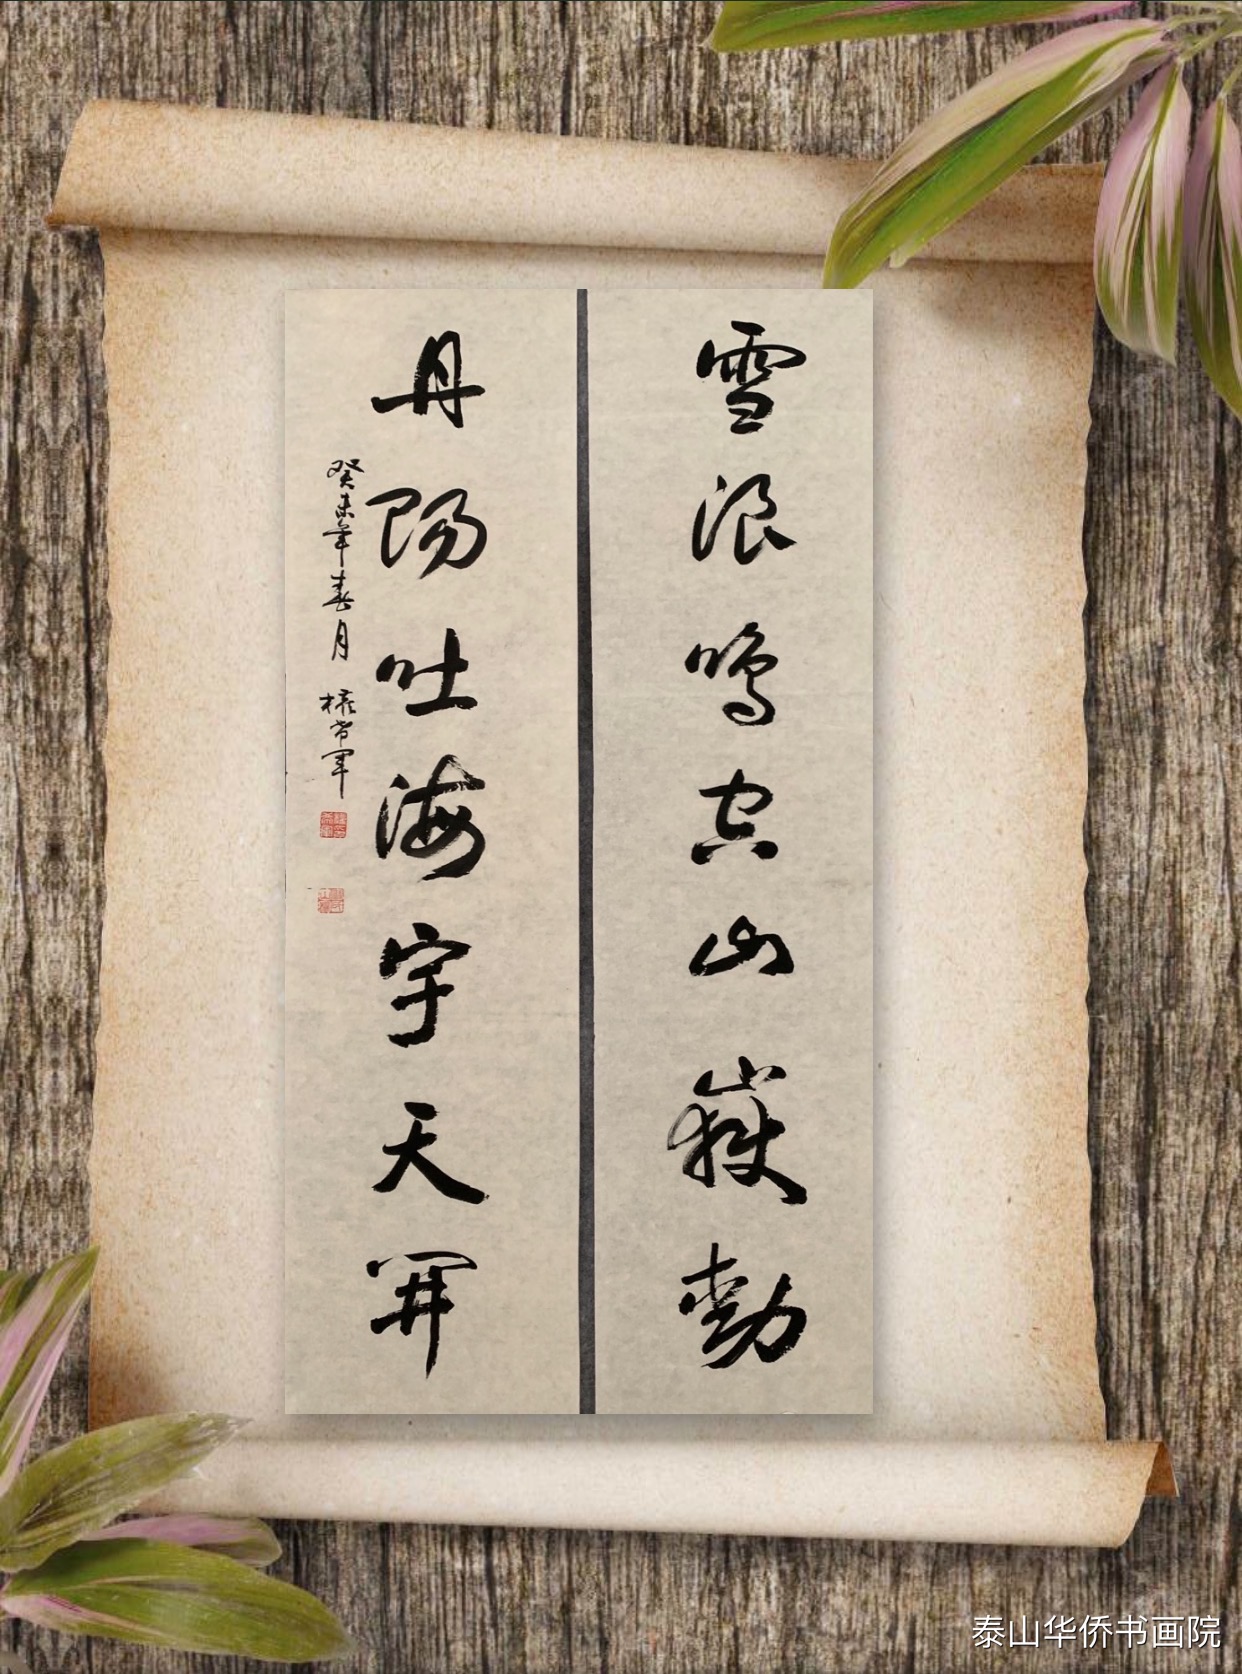 雪浪鸣空山岳动
丹阳吐海宇天开
癸未年春月 权希军
泰山华侨书画院